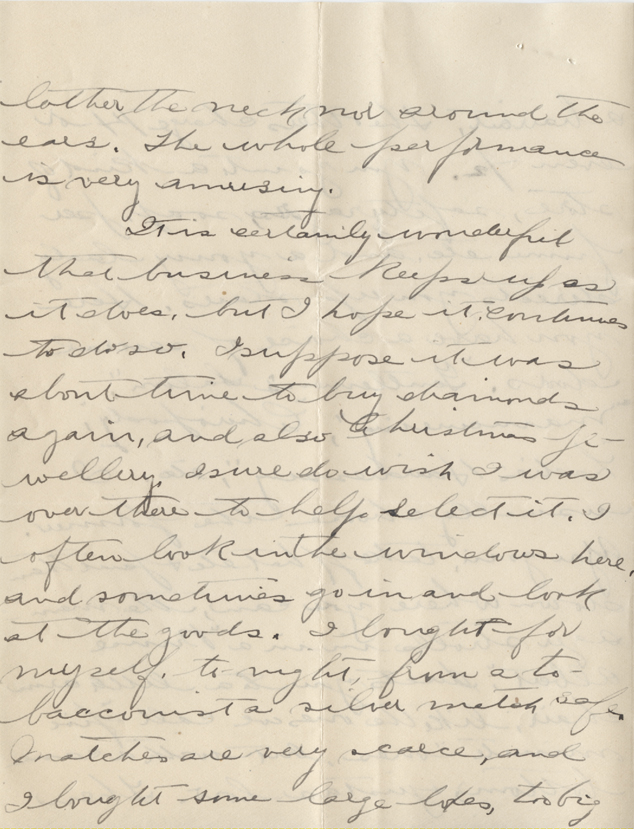 lather the neck nor around the
ears. The whole performance
is very amusing.
It is certainly wonderful
that business keeps up as
it does, but I hope it continues
to do so. I suppose it was
about time to buy diamonds
again, and also Christmas je-
wellery. I sure do wish I was
over there to help select it. I
often look in the windows here,
and sometimes go in and look
at the goods. I bought for
myself, to night, from a to-
bacconist a silver match safe.
Matches are very scarce, and
I bought some large boxes, too big